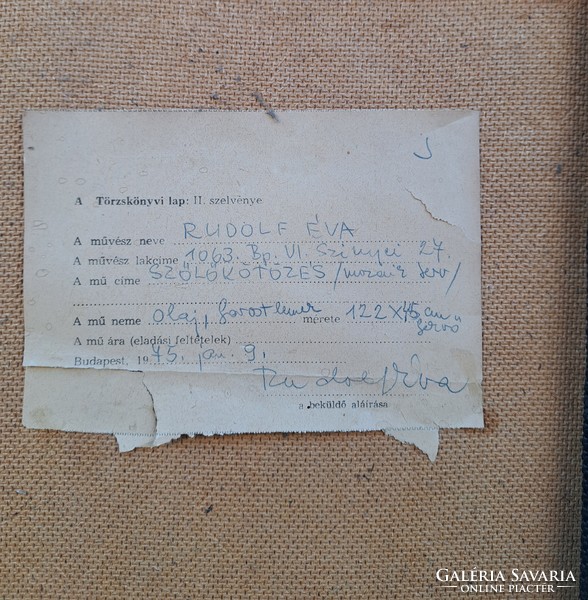 A Törzskönyvi lap: II. szelvénye
A művész neve RUDOLF ÉVA
A művész lakcíme 1063. Bp. VI. Szinyei 27.
A mű címe SZŐLŐKÖTÖZÉS /mozaik terv/
A mű neme olaj, farostlemez mérete 122X45 cm
A mű ára (eladási feltételek)
Budapest, 1975. jan. 9.
Rudolf Éva
a beküldő aláírása
GALÉRIA SAVARIA
ONLINE PIACTÉR